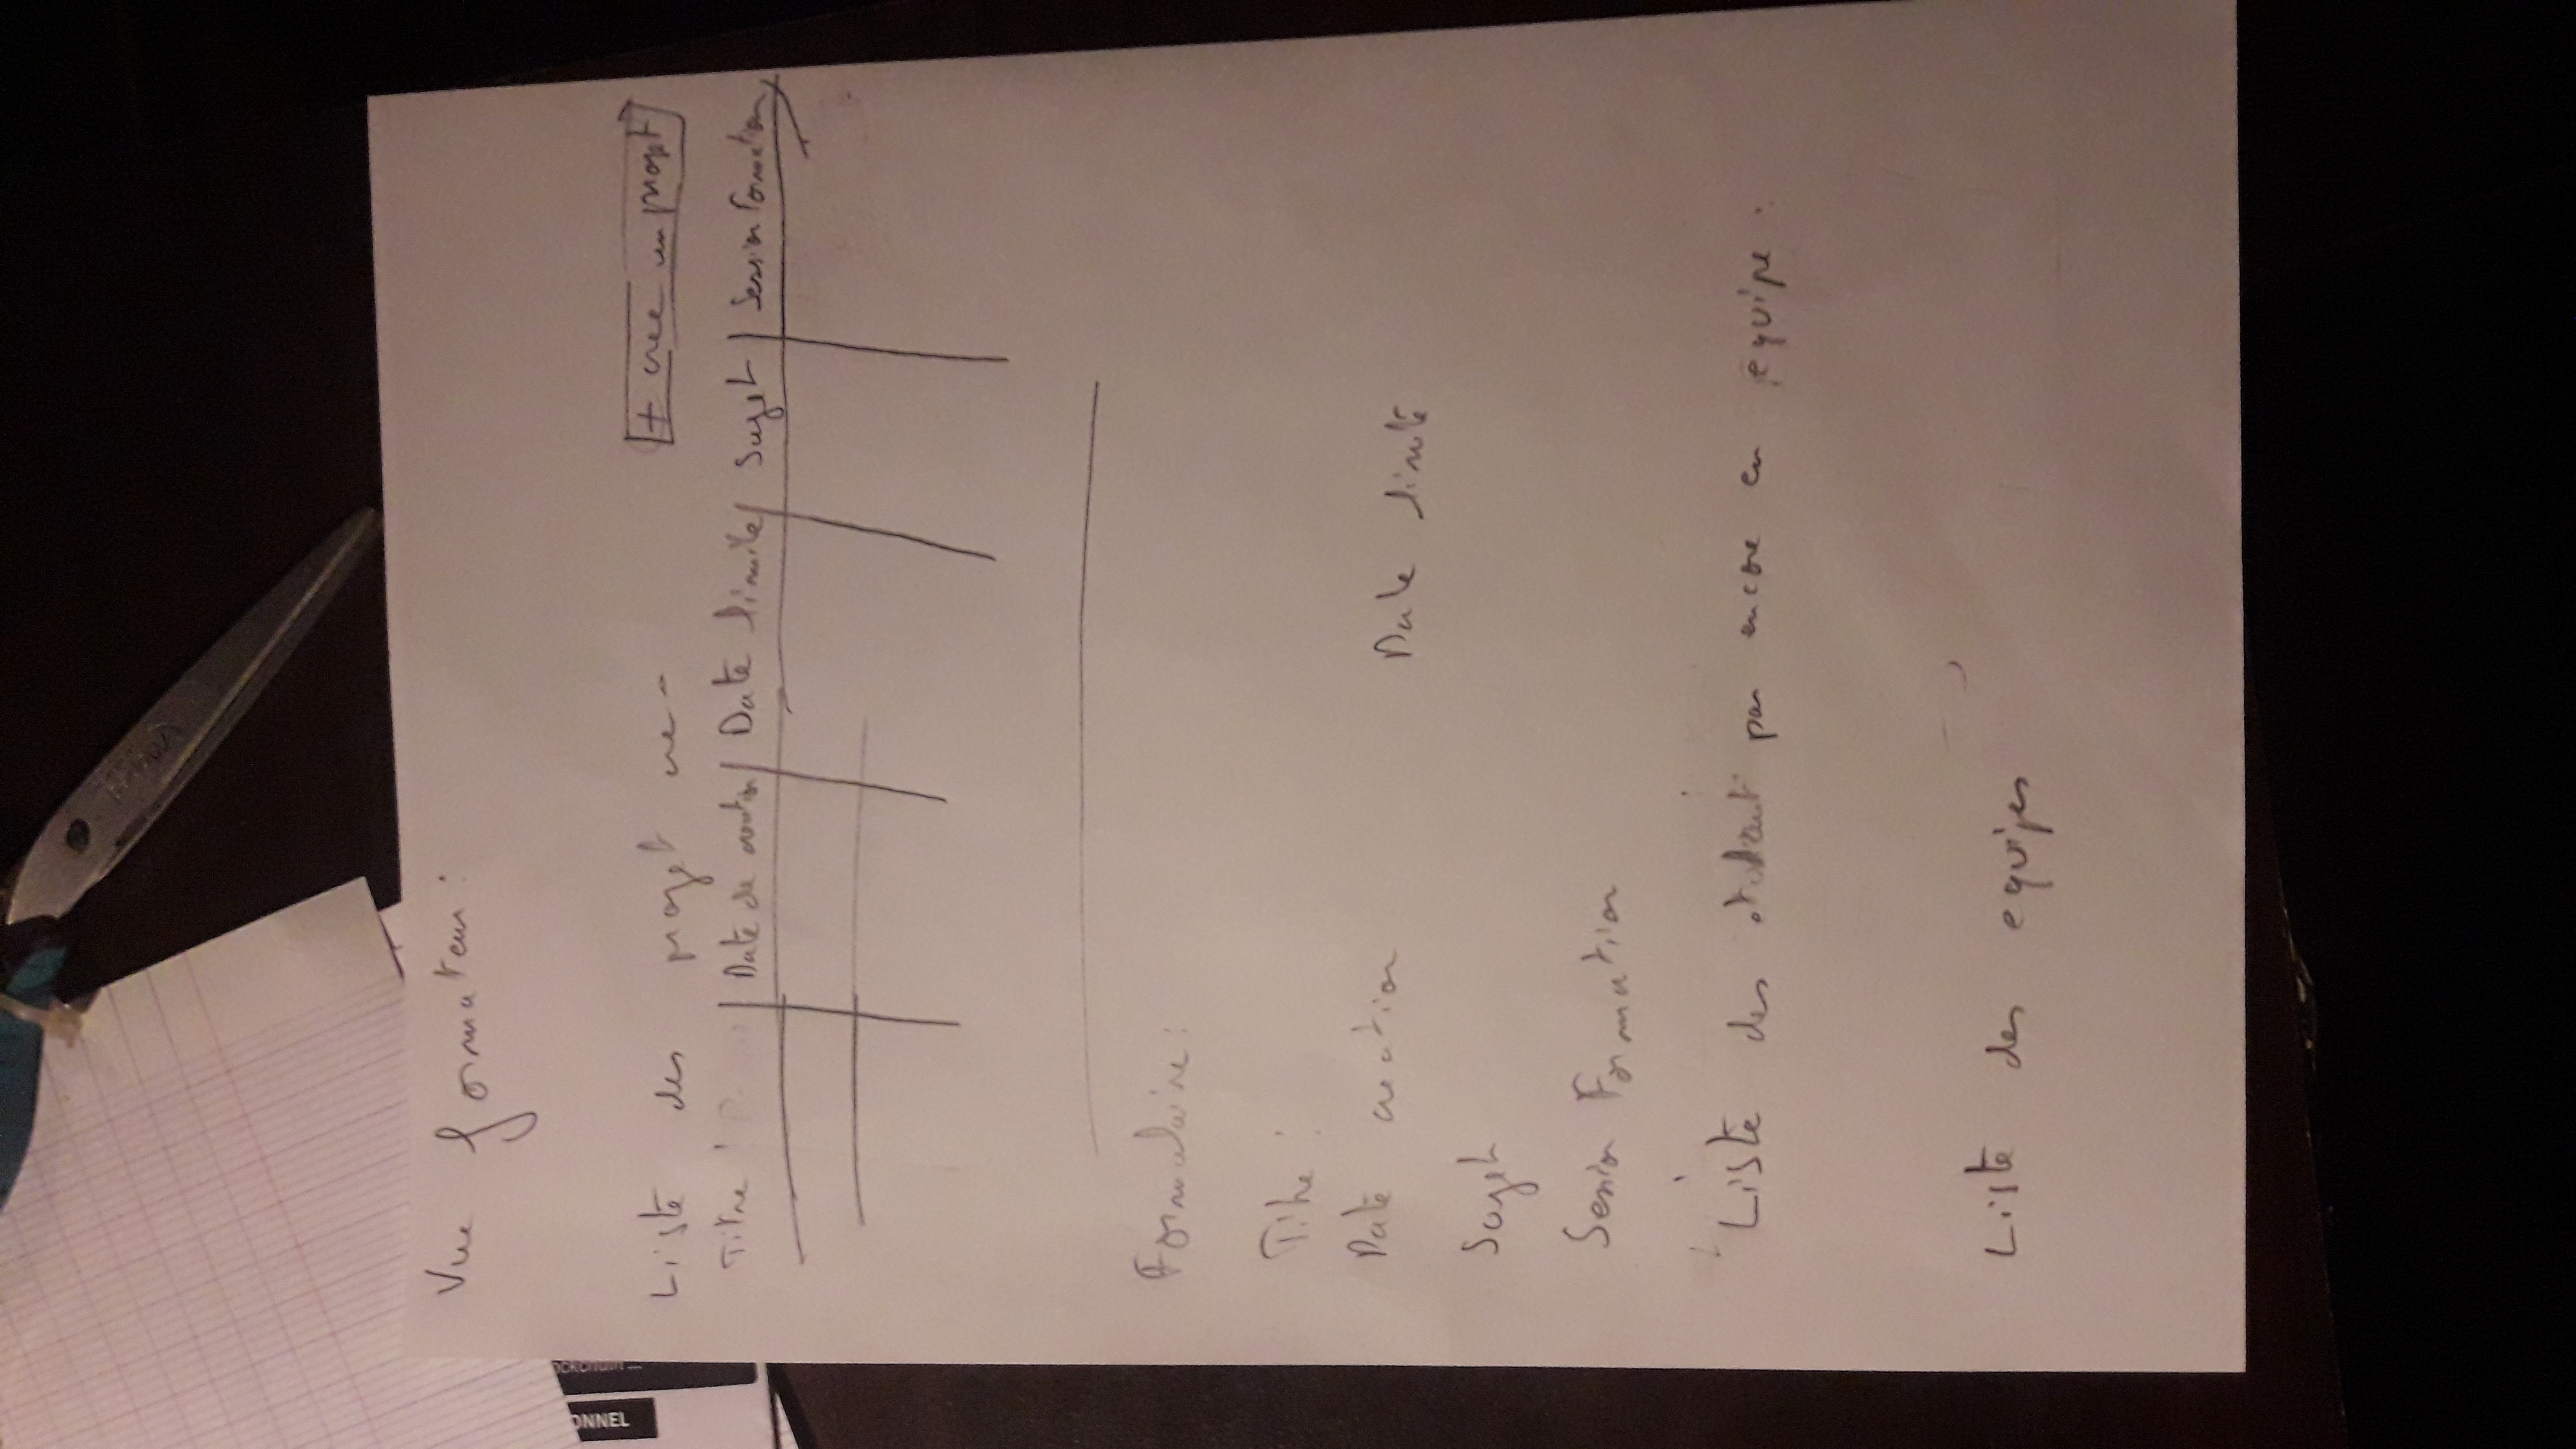 Vue formateur :
Liste des projet cree
+ cree un projet
Titre | Date de creation | Date limite | Sujet | Session Formation
Formulaire :
Titre :
Date creation Date limite
Sujet
Session Formation
Liste des etudiant pas encore en equipe :
Liste des equipes
ONNEL